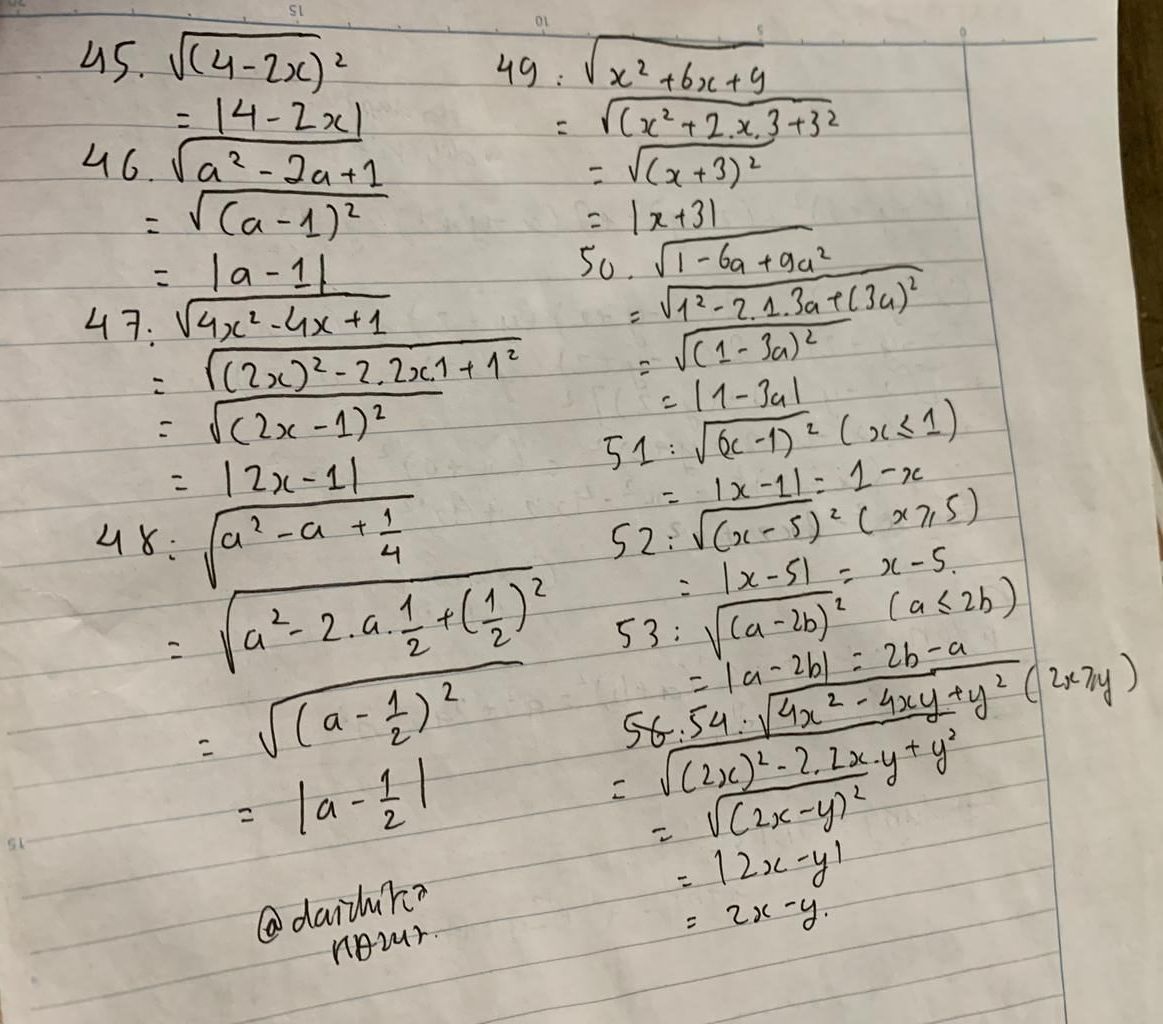 45. √(4-2x)²
= |4-2x|
46. √a²-2a+1
= √(a-1)²
= |a-1|
47: √4x²-4x+1
= √(2x)²-2.2x.1+1²
= √(2x-1)²
= |2x-1|
48: √a²-a+1/4
= √a²-2.a.1/2+(1/2)²
= √(a-1/2)²
= |a-1/2|
49: √x²+6x+9
= √(x²+2.x.3+3²
= √(x+3)²
= |x+3|
50. √1-6a+9a²
= √1²-2.1.3a+(3a)²
= √(1-3a)²
= |1-3a|
51: √(x-1)² (x≤1)
= |x-1| = 1-x
52: √(x-5)² (x⩾5)
= |x-5| = x-5.
53: √(a-2b)² (a≤2b)
= |a-2b| = 2b-a
56.54: √4x²-4xy+y² (2x⩾y)
= √(2x)²-2.2x.y+y²
= √(2x-y)²
= |2x-y|
= 2x-y.
15
10
5
0
15